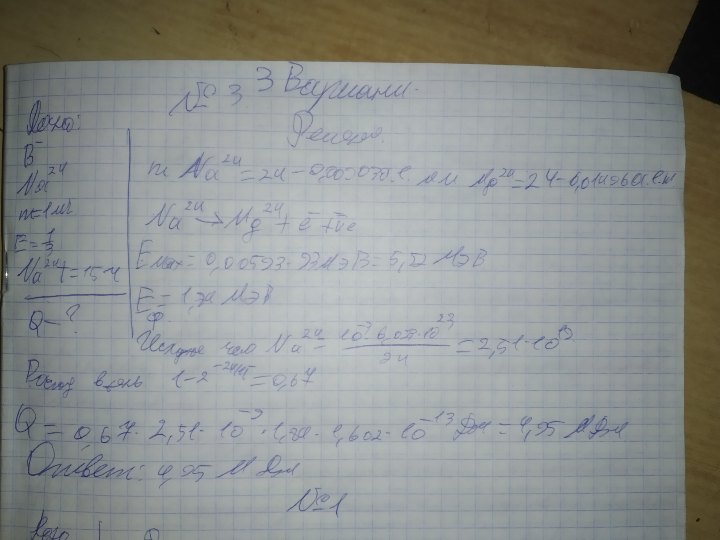 3 Вариант.
№ 3.
Дано:
β⁻
Na²⁴
m=1 мг
E=1/3
Na²⁴ t=15 ч
Q-?
Решение.
m Na²⁴ = 24 - 0,00903 а.е.м. Mg²⁴ = 24 - 0,01496 а.е.м
Na²⁴ → Mg²⁴ + e⁻ + νe
E max = 0,00593·931 МэВ = 5,52 МэВ
E = 1,84 МэВ
число Na²⁴ = 10⁻³·6,023·10²³/24 = 2,51·10¹⁹
1-2^(-24/15) = 0,67
Q = 0,67·2,51·10⁻⁹·1,84·1,602·10⁻¹³ Дж = 4,95 МДж
Ответ: 4,95 МДж
№1